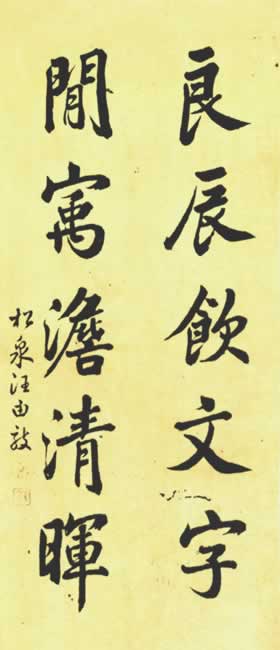 良辰飲文字
閒寓澹清暉
松泉汪由敦